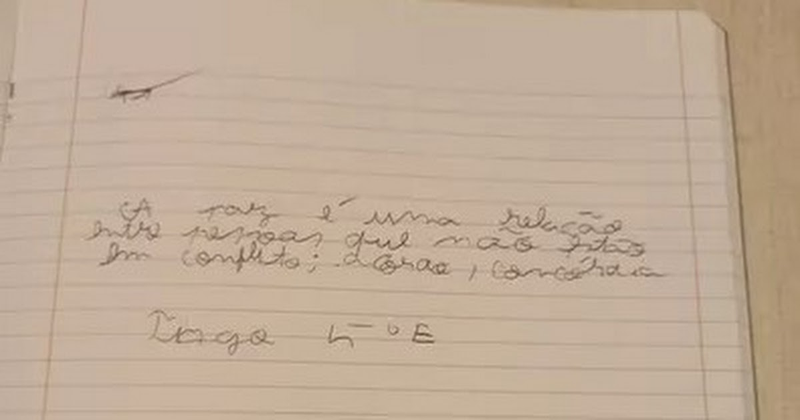 A paz é uma relação
entre pessoas que não estão
em conflito; acordo, concórdia
Iago 5º E